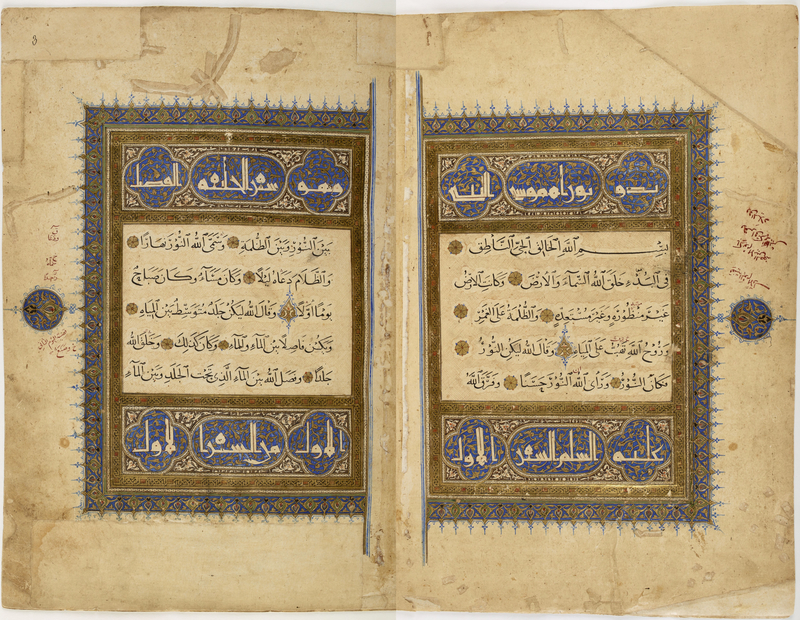 بدو توراة موسى النبي
بسم الله الخالق الحي الناطق
في البدء خلق الله السماء والارض وكانت الارض
غير منظورة وغير مستعدة والظلمة على الغمر
وروح الله تهب على المياه وقال الله ليكن النور
فكان النور وراى الله النور حسنا وفرق الله
عليه السلم السفر الاول
3
وهو سفر الخليقه الفصل
بين النور وبين الظلمة وسمى الله النور نهارا
والظلام دعاه ليلا وكان مساء وكان صباح
يوما اولا وقال الله ليكن جلد متوسط بين المياه
ويكون فاصلا بين الماء والماء وكان كذلك وخلق الله
جلدا وفصل الله بين الماء الذي تحت الجلد وبين الماء
الاول من السفر الاول